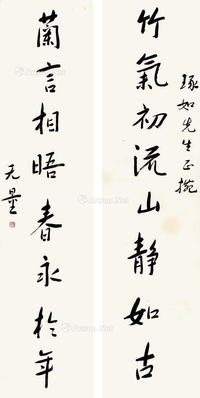 琢如先生正捥
竹氣初流山靜如古
蘭言相晤春永於年
无量